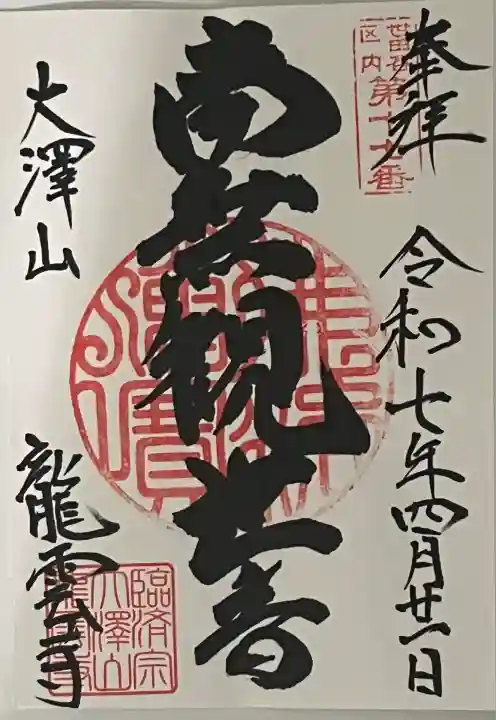 奉拝
世田谷
区内
第十七番
令和七年四月廿一日
南無観世音
大澤山
龍雲寺
臨済宗
大澤山
龍雲寺